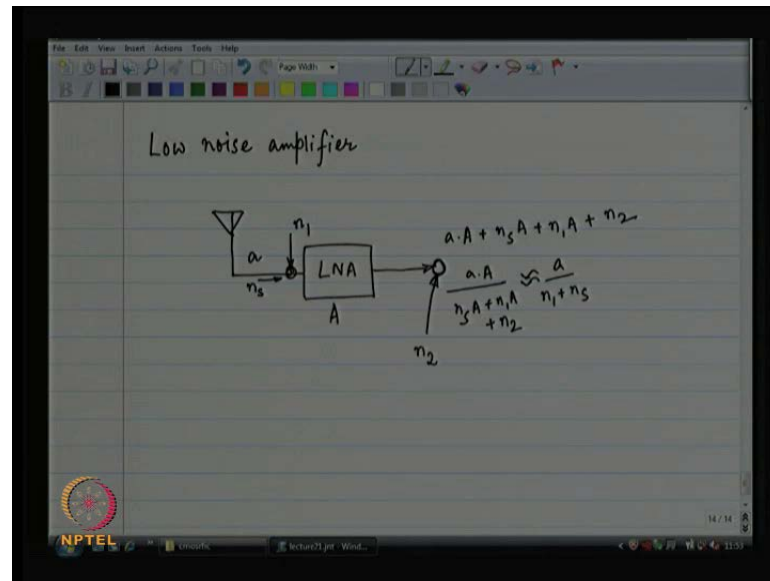 File Edit View Insert Actions Tools Help
Page Width
Low noise amplifier
n₁
a
n_s
LNA
A
a.A + n_s A + n₁A + n₂
a.A / (n_s A + n₁A + n₂) ≈ a / (n₁ + n_s)
n₂
NPTEL
14 / 14
cmosrfic
lecture21.jnt - Wind...
11:53